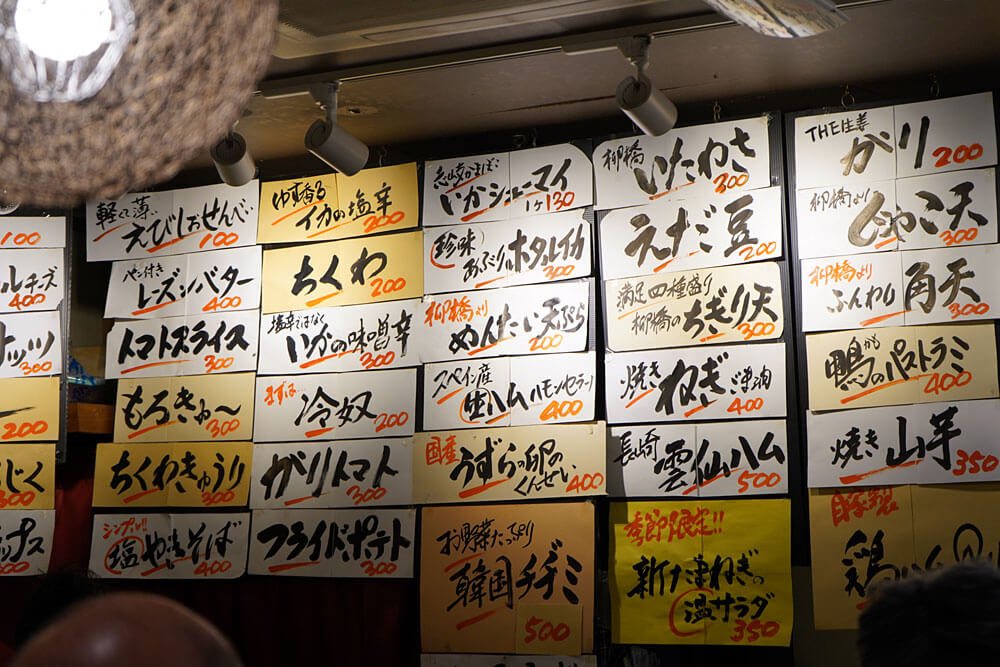 100
ルチーズ
400
ナッツ
300
200
にく
300
ップス
300
軽く薄く
えびしおせんべい
100
パン付き
レーズンバター
400
トマトスライス
300
もろきゅ〜
300
ちくわきゅうり
300
シンプル!!
塩やきそば
400
ゆず香る
イカの塩辛
200
ちくわ
200
塩辛ではなく
いかの味噌辛
300
まずは
冷奴
200
がりトマト
300
フライドポテト
300
いかシューマイ
1ケ130
珍味
あぶりホタルイカ
300
柳橋より
めんたい天ぷら
200
スペイン産
生ハム ハモンセラーノ
400
国産
うずらの卵の
くんせい 400
お野菜たっぷり
韓国チヂミ
500
柳橋
いたわさ
300
えだ豆
200
満足四種盛り
柳橋のちぎり天
300
焼き ねぎ ごま油
400
長崎
雲仙ハム
500
季節限定!!
新たまねぎの
温サラダ
350
THE生姜
がり
200
柳橋より
じゃこ天
300
柳橋より
ふんわり 角天
300
鴨のパストラミ
400
焼き 山芋
350
自家製
鶏ハム